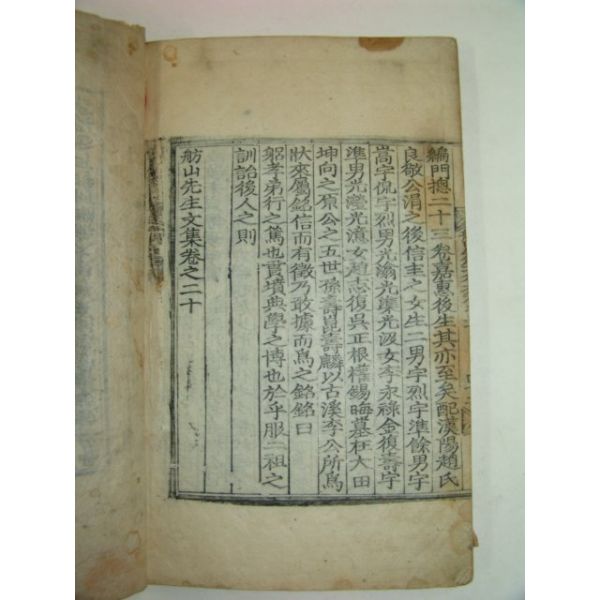 編門摠二十三卷嘉惠後生其亦至矣配漢陽趙氏
良敬公涓之後信圭之女生二男宇烈宇準餘男宇
嵩宇侃宇烈男光瀚光㵯光汲女李永祿金復壽宇
準男光瀅光濾女趙志復吳正根權錫晦墓在大田
坤向之原公之五世孫壽崑壽麟以古溪李公所爲
狀來屬銘信而有徵乃敢據而爲之銘銘曰
躬孝弟行之篤也貫墳典學之博也於乎服二祖之
訓詒後人之則
舫山先生文集卷之二十